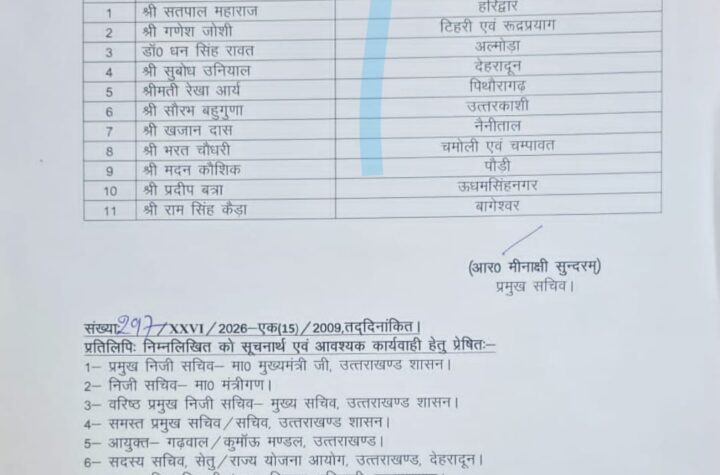 1 श्री सतपाल महाराज हरिद्वार
2 श्री गणेश जोशी टिहरी एवं रूद्रप्रयाग
3 डॉ0 धन सिंह रावत अल्मोड़ा
4 श्री सुबोध उनियाल देहरादून
5 श्रीमती रेखा आर्य पिथौरागढ़
6 श्री सौरभ बहुगुणा उत्तरकाशी
7 श्री खजान दास नैनीताल
8 श्री भरत चौधरी चमोली एवं चम्पावत
9 श्री मदन कौशिक पौड़ी
10 श्री प्रदीप बत्रा ऊधमसिंहनगर
11 श्री राम सिंह कैड़ा बागेश्वर
(आर0 मीनाक्षी सुन्दरम्)
प्रमुख सचिव।
संख्याः297/XXVI/2026–एक(15)/2009,तद्दिनांकित।
प्रतिलिपिः निम्नलिखित को सूचनार्थ एवं आवश्यक कार्यवाही हेतु प्रेषितः–
1– प्रमुख निजी सचिव– मा0 मुख्यमंत्री जी, उत्तराखण्ड शासन।
2– निजी सचिव– मा0 मंत्रीगण।
3– वरिष्ठ प्रमुख निजी सचिव– मुख्य सचिव, उत्तराखण्ड शासन।
4– समस्त प्रमुख सचिव/सचिव, उत्तराखण्ड शासन।
5– आयुक्त– गढ़वाल/कुमॉऊ मण्डल, उत्तराखण्ड।
6– सदस्य सचिव, सेतु/राज्य योजना आयोग, उत्तराखण्ड, देहरादून।